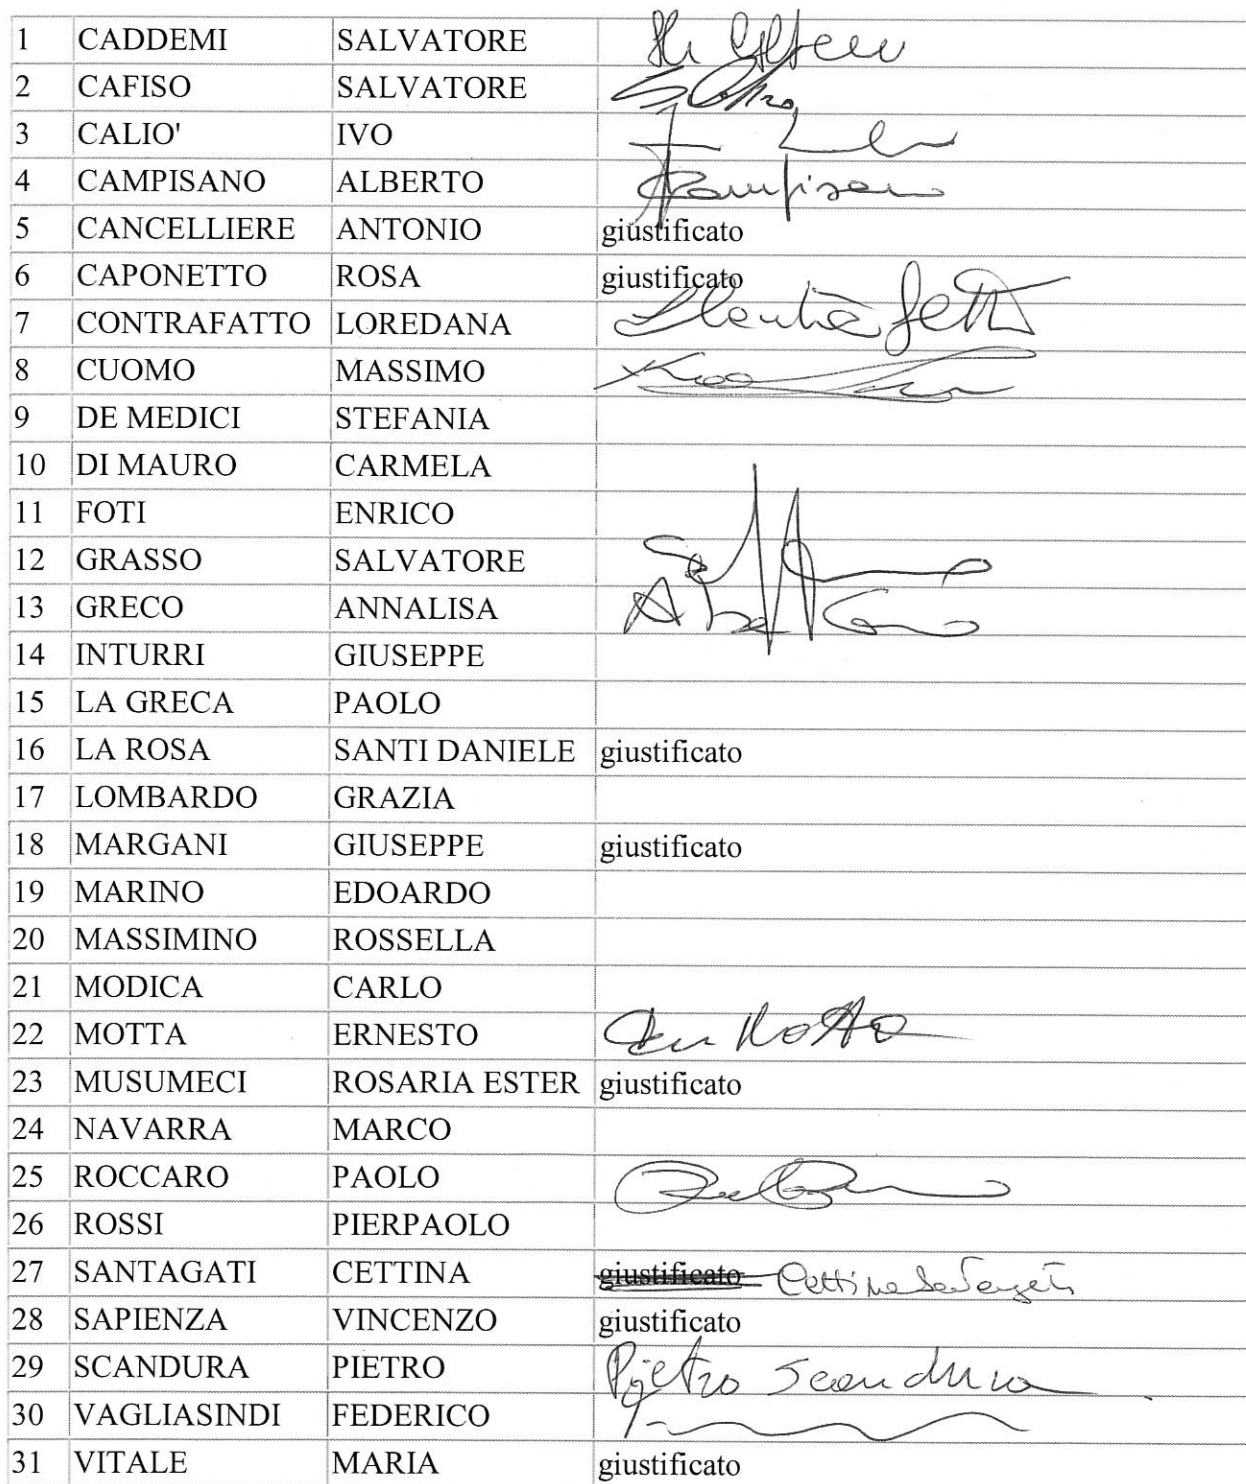 1 CADDEMI SALVATORE
2 CAFISO SALVATORE
3 CALIO' IVO
4 CAMPISANO ALBERTO
5 CANCELLIERE ANTONIO giustificato
6 CAPONETTO ROSA giustificato
7 CONTRAFATTO LOREDANA
8 CUOMO MASSIMO
9 DE MEDICI STEFANIA
10 DI MAURO CARMELA
11 FOTI ENRICO
12 GRASSO SALVATORE
13 GRECO ANNALISA
14 INTURRI GIUSEPPE
15 LA GRECA PAOLO
16 LA ROSA SANTI DANIELE giustificato
17 LOMBARDO GRAZIA
18 MARGANI GIUSEPPE giustificato
19 MARINO EDOARDO
20 MASSIMINO ROSSELLA
21 MODICA CARLO
22 MOTTA ERNESTO Motta
23 MUSUMECI ROSARIA ESTER giustificato
24 NAVARRA MARCO
25 ROCCARO PAOLO
26 ROSSI PIERPAOLO
27 SANTAGATI CETTINA giustificato Cettina Santagati
28 SAPIENZA VINCENZO giustificato
29 SCANDURA PIETRO Pietro Scandura
30 VAGLIASINDI FEDERICO
31 VITALE MARIA giustificato